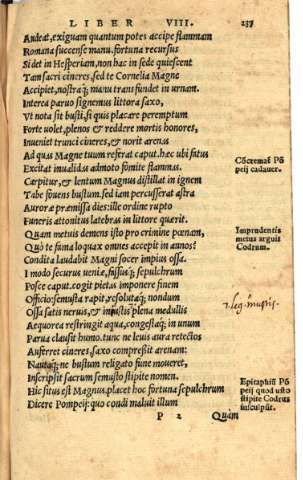 LIBER VIII. 237
Audeat, exiguam quantum potes accipe flammam
Romana succense manu. fortuna recursus
Si det in Hesperiam, non hac in sede quiescent
Tam sacri cineres, sed te Cornelia Magne
Accipiet, nostraq; manu transfundet in urnam.
Interea paruo signemus littora saxo,
Vt nota sit busti, si quis placare peremptum
Forte uolet, plenos & reddere mortis honores,
Inueniet trunci cineres, & norit arenas
Ad quas Magne tuum referat caput. hæc ubi fatus
Excitat inualidas admoto fomite flammas.
Carpitur, & lentum Magnus distillat in ignem
Tabe fouens bustum. sed iam percusserat astra
Auroræ præmissa dies: ille ordine rupto
Funeris attonitus latebras in littore quærit.
Quam metuis demens isto pro crimine pœnam,
Quo te fama loquax omnes accepit in annos?
Condita laudabit Magni socer impius ossa.
I modo securus ueniæ, fassusq; sepulchrum
Posce caput. cogit pietas imponere finem
Officio: semusta rapit, resolutaq; nondum
Ossa satis neruis, & inustis plena medullis
Aequorea restringit aqua, congestaq; in unum
Parua clausit humo. tunc ne leuis aura retectos
Auferret cineres, saxo compressit arenam:
Nautaq; ne bustum religato fune moueret,
Inscripsit sacrum semusto stipite nomen.
Hic situs est Magnus. placet hoc fortuna sepulchrum
Dicere Pompeij: quo condi maluit illum
P 2 Quàm
Cõcremat Põ
peij cadauer.
Imprudentis
metus arguit
Codrum.
Epitaphiũ Põ
peij quod usto
stipite Codrus
insculpsit.